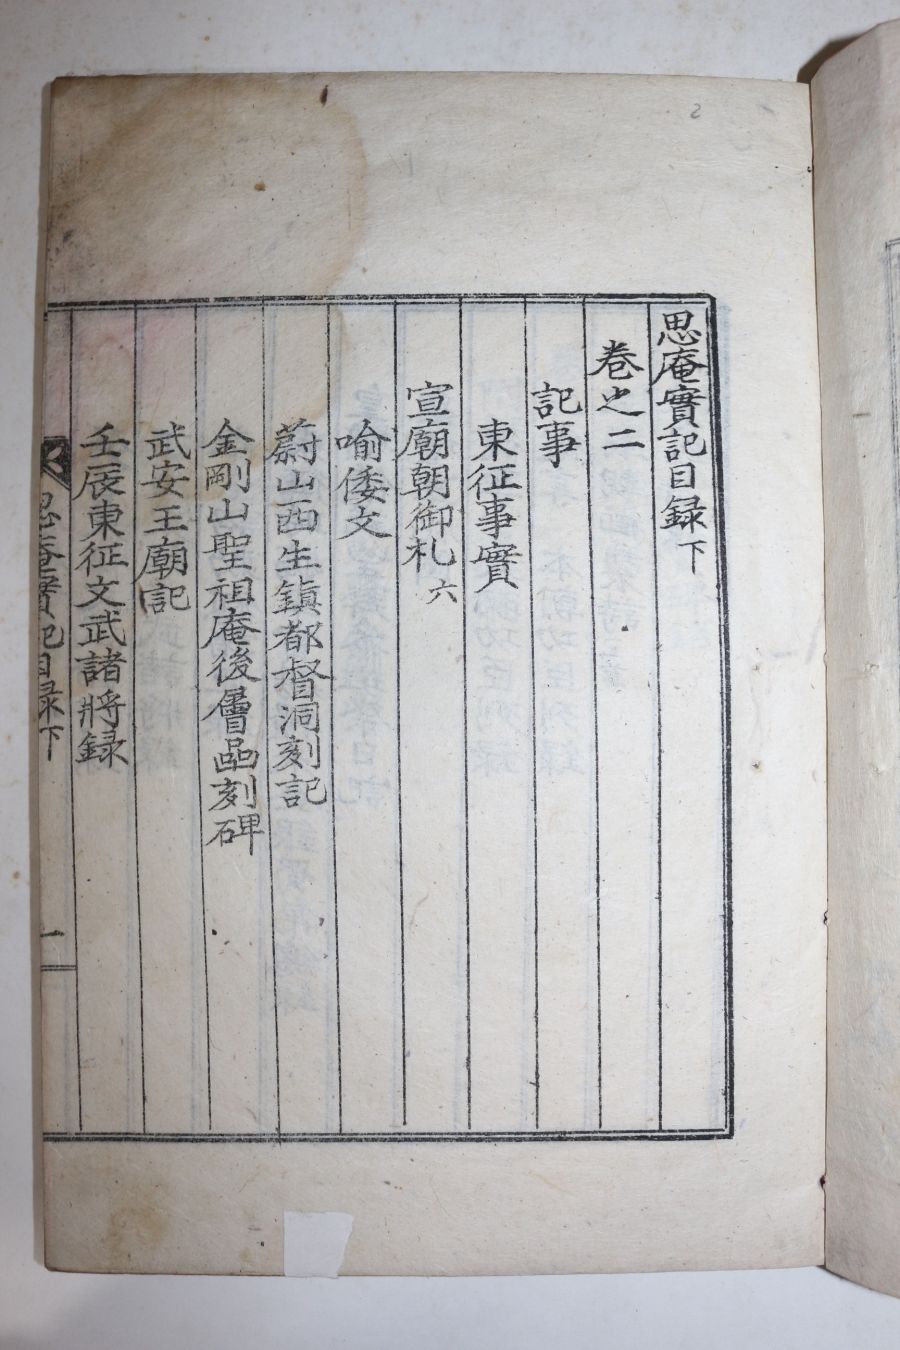 思庵實記目録下
卷之二
記事
東征事實
宣廟朝御札 六
喻倭文
蔚山西生鎮都督洞刻記
金剛山聖祖庵後層品刻碑
武安王廟記
壬辰東征文武諸將録
思庵實記目録下
一
2